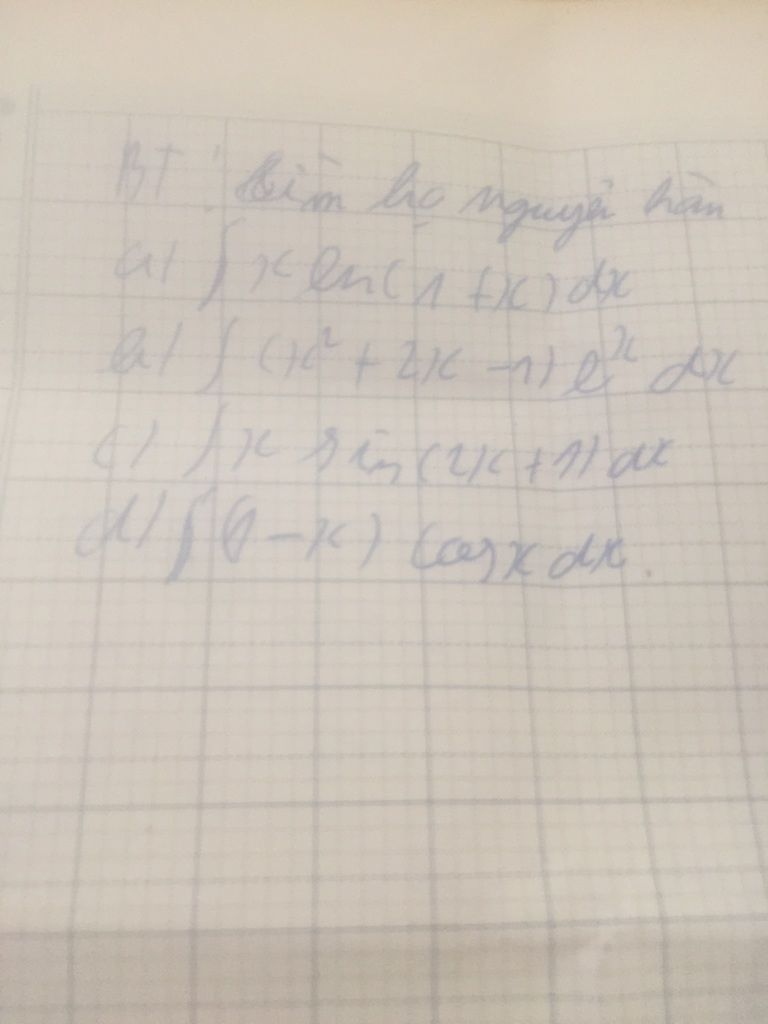 BT: Tìm họ nguyên hàm
a) ∫ x ln(1 + x) dx
b) ∫ (x² + 2x - 1) e^x dx
c) ∫ x sin(2x + 1) dx
d) ∫ (1 - x) cos x dx.